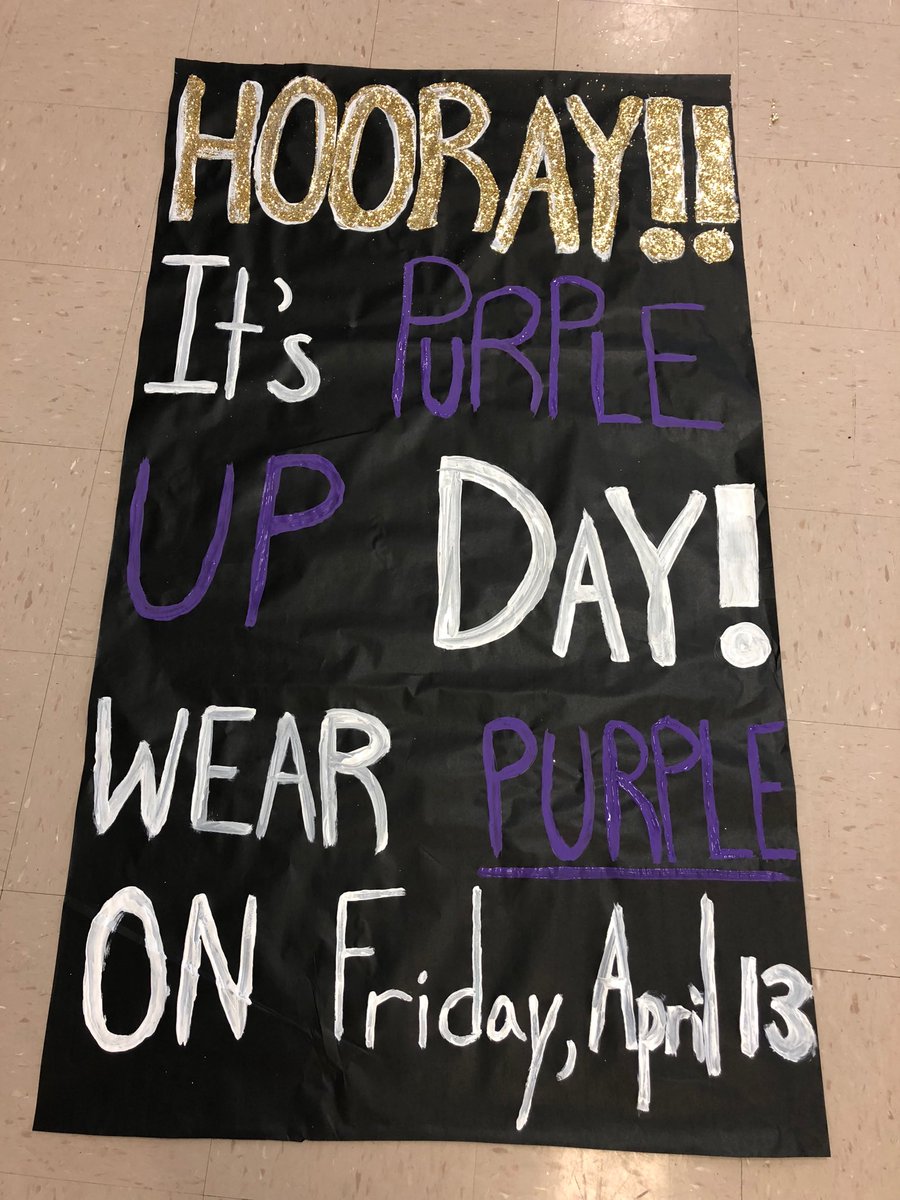 HOORAY!!
It's PURPLE
UP DAY!
WEAR PURPLE
ON Friday, April 13